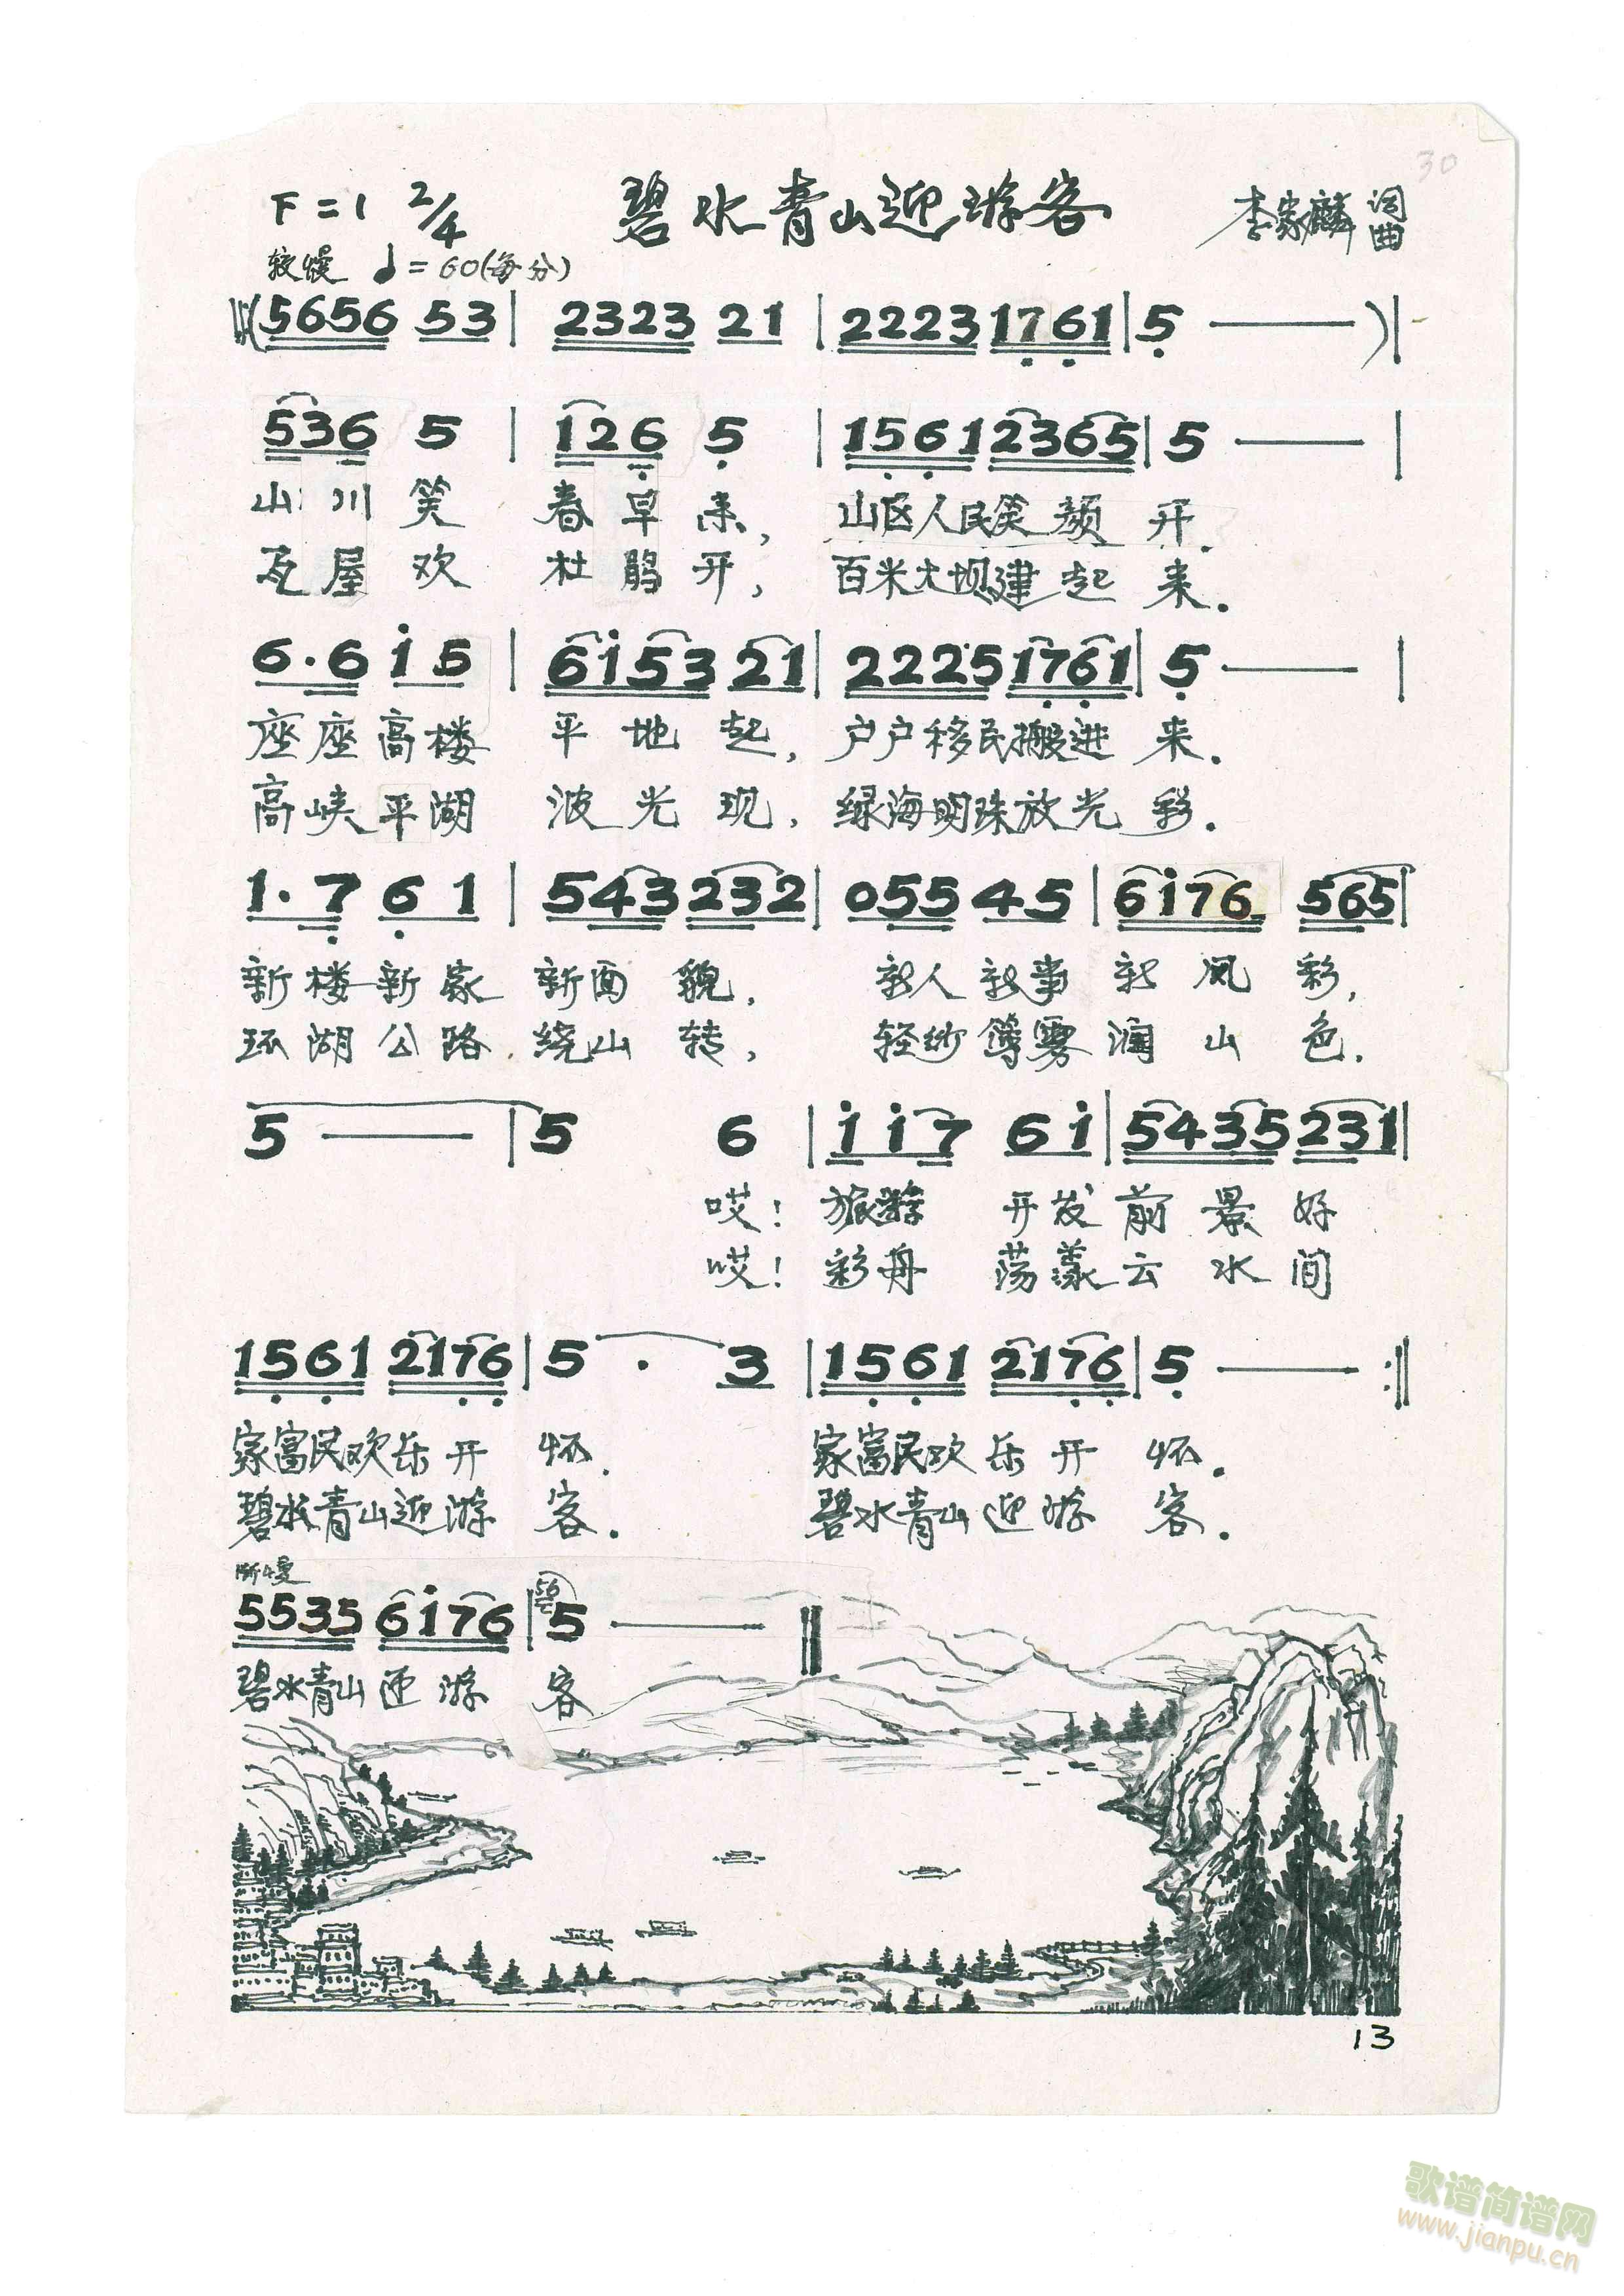 30
F=1 2/4 碧水青山迎游客 李家麟 词曲
较慢 ♩=60(每分)
(5656 53 | 2323 21 | 2223 1761 | 5 — )|
536 5 | 126 5 | 1561 2365 | 5 — |
山川笑 春早来, 山区人民笑颜开.
瓦屋欢 杜鹃开, 百米大坝建起来.
6·6 i5 | 6i53 21 | 2225 1761 | 5 — |
座座高楼 平地起, 户户移民搬进来.
高峡平湖 波光现, 绿海明珠放光彩.
1·7 61 | 543 232 | 055 45 | 6i76 565 |
新楼新家 新面貌, 新人新事 新风彩,
环湖公路 绕山转, 轻纱薄雾 润山色.
5 — | 5 6 | i i7 6i | 5435 231 |
哎! 旅游 开发前景好
哎! 彩舟 荡漾云水间
1561 2176 | 5 · 3 | 1561 2176 | 5 — :||
家富民欢乐开怀. 家富民欢乐开怀.
碧水青山迎游客. 碧水青山迎游客.
渐慢
5535 6i76 | 56 5 — ||
碧水青山迎游客
13
歌谱简谱网
www.jianpu.cn